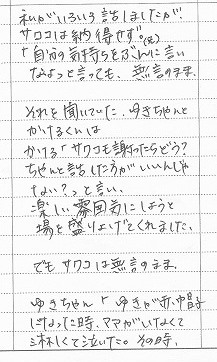 私がいろいろ話しましたが、
サワコは納得せず。(兄)
「自分の気持ちをぶんに言い
なよっと言っても、無言のまま.
それを聞いていた、ゆきちゃんと
かけるくんは
かける「サワコも謝ったらどう?
ちゃんと話した方がいいんじゃ
ない?っと言い、
楽しい雰囲気にしようと
場を盛りよげてくれました.
でもサワコは無言のまま.
ゆきちゃん「ゆきが赤帽子
になった時、ママがいなくて
淋しくて泣いたの その時、